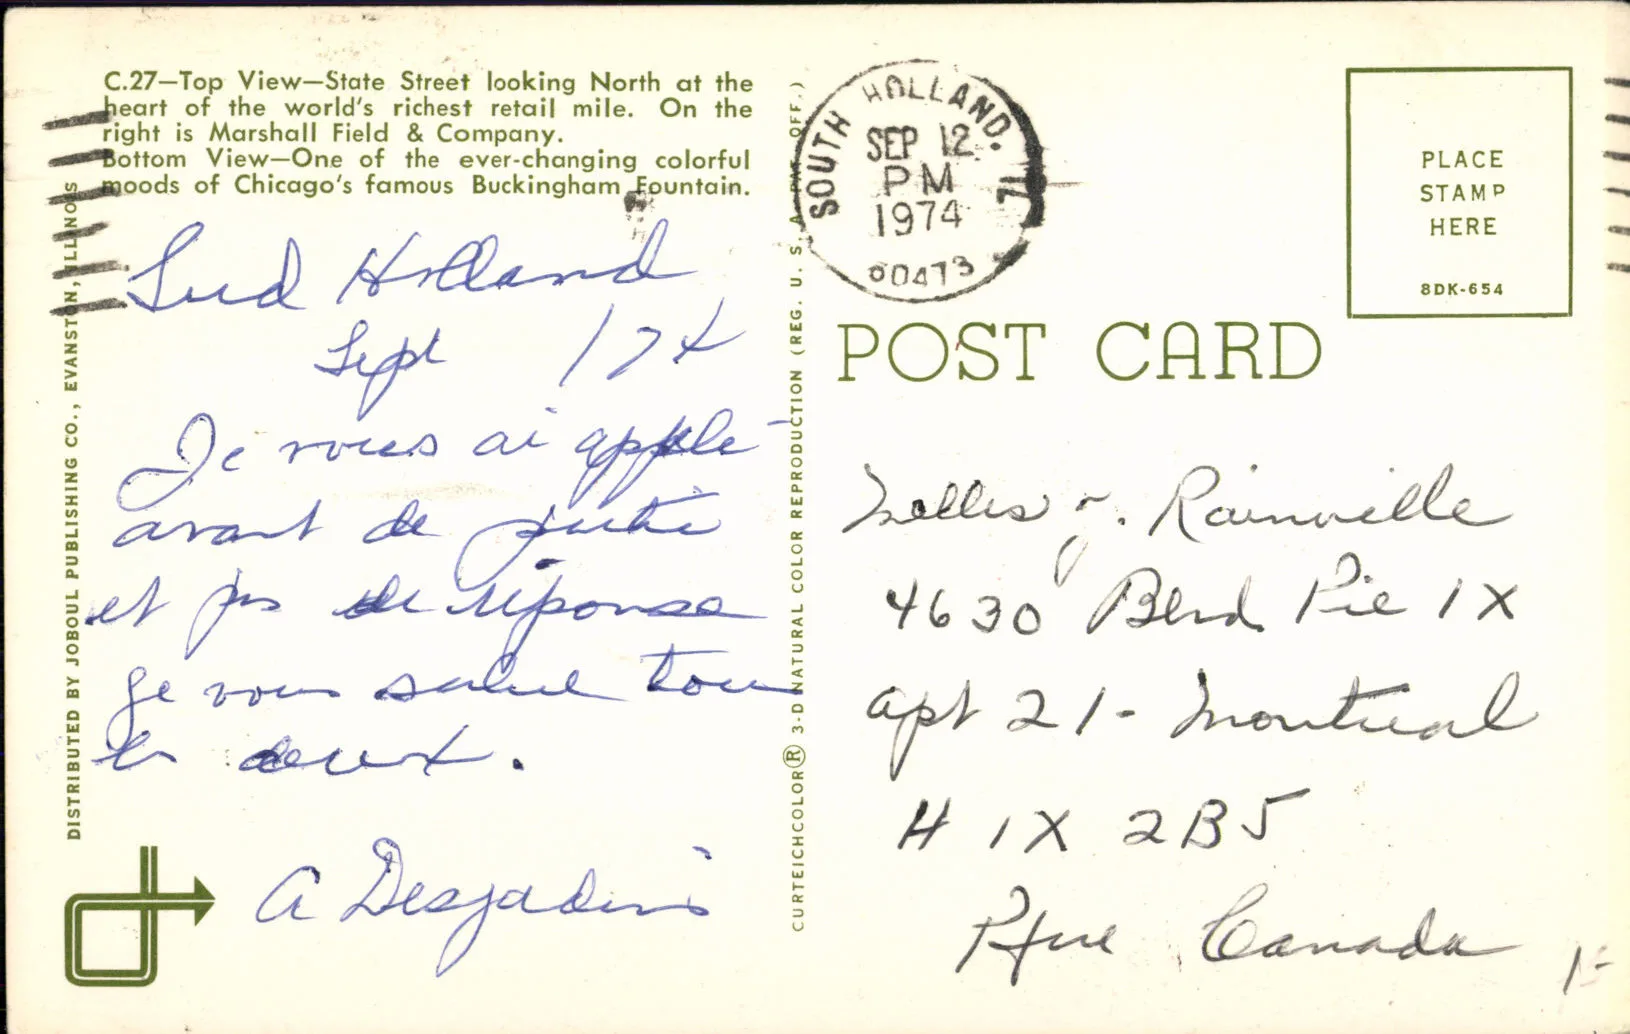 C.27—Top View—State Street looking North at the
heart of the world's richest retail mile. On the
right is Marshall Field & Company.
Bottom View—One of the ever-changing colorful
moods of Chicago's famous Buckingham Fountain.
Sud Holland
Sept 174
Je vous ai applé
avant de partir
et pas de réponse
je vous salue tou
les deux.
A Desjadins
DISTRIBUTED BY JOBOUL PUBLISHING CO., EVANSTON, ILLINOIS
CURTEICHCOLOR® 3-D NATURAL COLOR REPRODUCTION (REG. U. S. A. PAT. OFF.)
SOUTH HOLLAND. IL
SEP 12
PM
1974
60473
PLACE
STAMP
HERE
8DK-654
POST CARD
Melles J. Rainville
4630 Blvd. Pie IX
apt 21- Montreal
H 1X 2B5
Canada